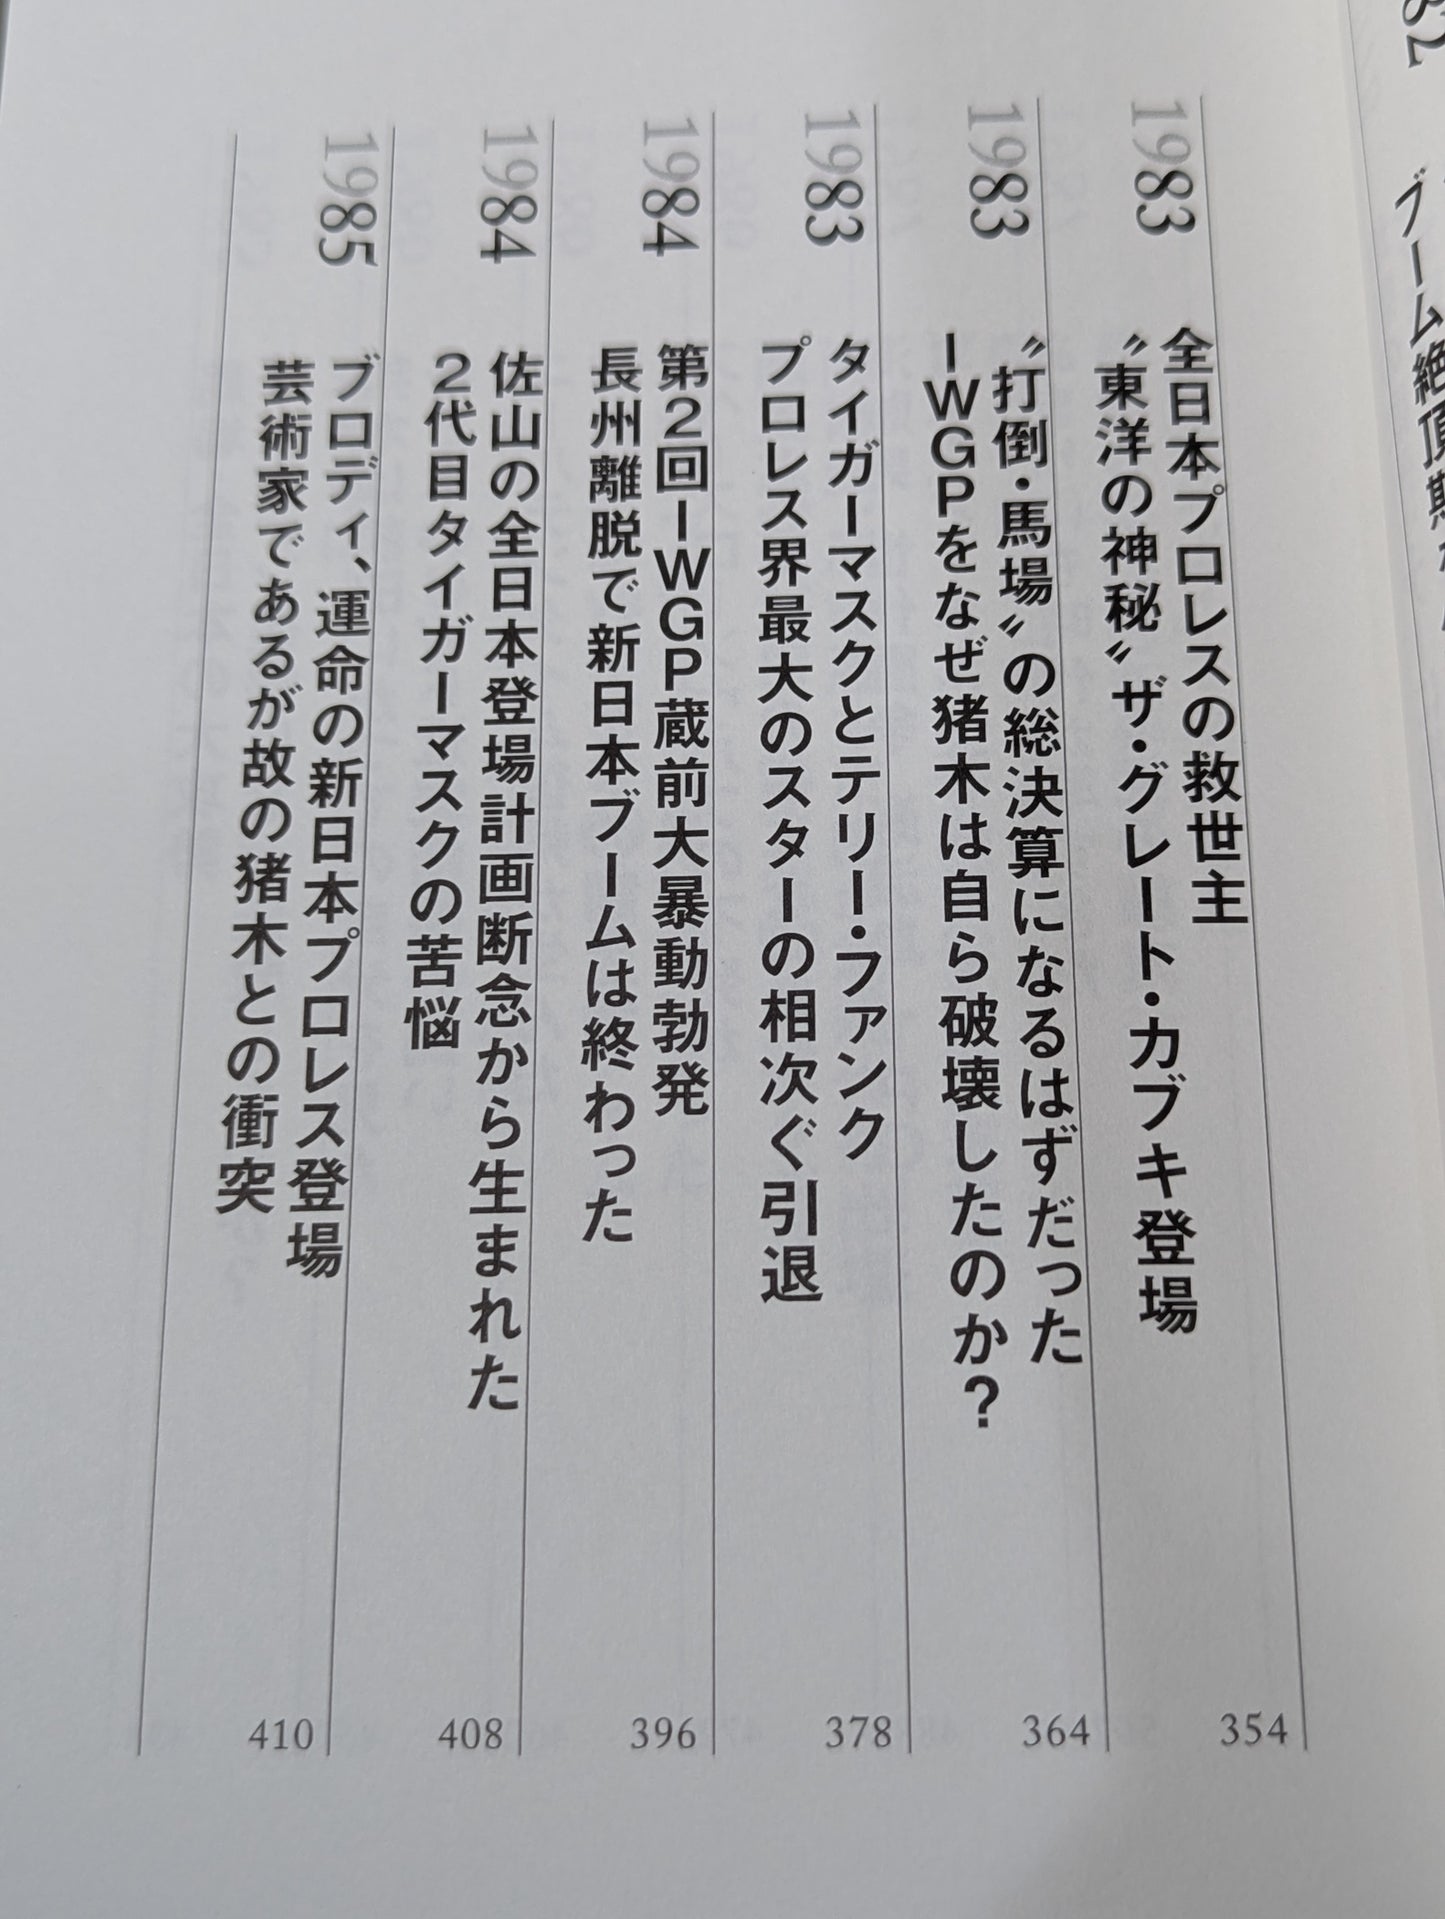 82
ブーム絶頂期
1983
全日本プロレスの救世主
〝東洋の神秘〟ザ・グレート・カブキ登場
354
1983
〝打倒・馬場〟の総決算になるはずだった
IWGPをなぜ猪木は自ら破壊したのか？
364
1983
タイガーマスクとテリー・ファンク
プロレス界最大のスターの相次ぐ引退
378
1984
第2回IWGP蔵前大暴動勃発
長州離脱で新日本ブームは終わった
396
1984
佐山の全日本登場計画断念から生まれた
2代目タイガーマスクの苦悩
408
1985
ブロディ、運命の新日本プロレス登場
芸術家であるが故の猪木との衝突
410